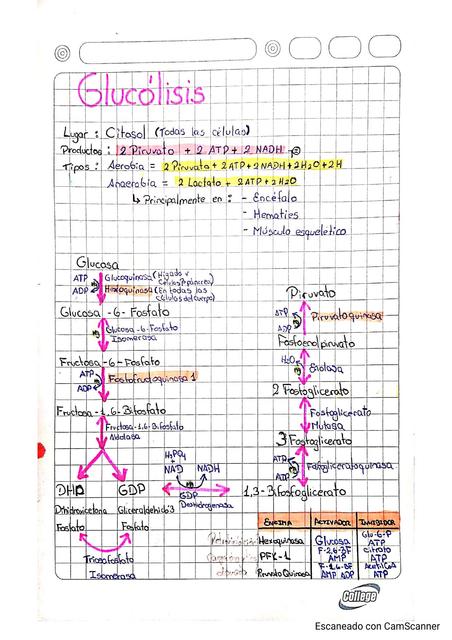 Glucólisis
Lugar : Citosol (Todas las células)
Productos : 2 Piruvato + 2 ATP + 2 NADH
Tipos : Aerobia = 2 Piruvato + 2ATP + 2NADH + 2H2O + 2H
Anaerobia = 2 Lactato + 2ATP + 2H2O
↳ Principalmente en : - Encéfalo
- Hematies
- Músculo esquelético
Glucosa
ATP
ADP
Glucoquinasa (Hígado y
Células β páncreas)
Hexoquinasa (En todas las
células del cuerpo)
Glucosa - 6 - Fosfato
Glucosa - 6 - Fosfato
Isomerasa
Fructosa - 6 - Fosfato
ATP
ADP
Fosfofructoquinasa 1
Fructosa - 1,6 - Bifosfato
Fructosa - 1,6 - Bifosfato
Aldolasa
DHD
Dihidroxicetona
Fosfato
GDP
Gliceraldehido 3
Fosfato
Triosafosfato
Isomerasa
H3PO4
+
NAD
NADH
GDP
Deshidrogenasa
1,3 - Bifosfoglicerato
ATP
ADP
Fosfogliceratoquinasa
3 Fosfoglicerato
Fosfoglicerato
Mutasa
2 Fosfoglicerato
H2O
Enolasa
Fosfoenolpiruvato
ATP
ADP
Piruvatoquinasa
Piruvato
ENZIMA ACTIVADOR INHIBIDOR
Hexoquinasa Glucosa Glu-6-P
ATP
PFK-1 F-2,6-BF AMP Citrato ATP
Piruvato Quinasa F-1,6-BF AMP ADP AcetilCoA ATP
College
Escaneado con CamScanner